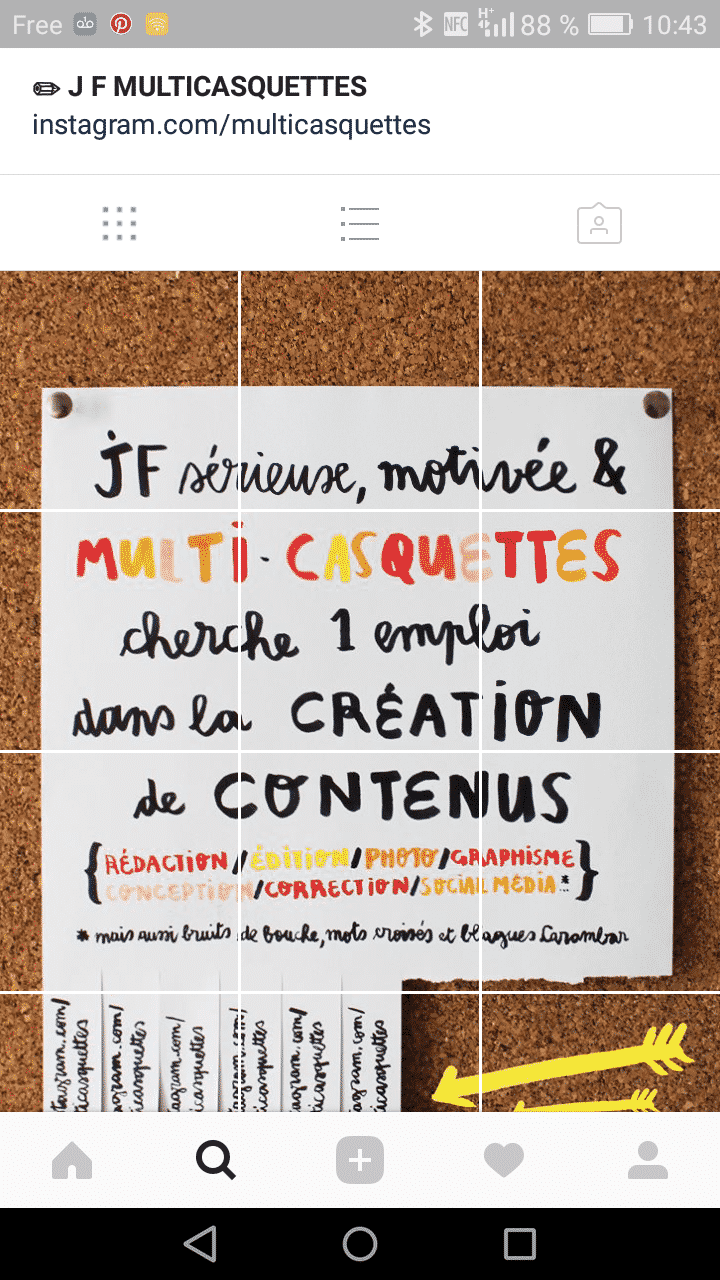 Free
NFC H+ 88 % 10:43
✏ J F MULTICASQUETTES
instagram.com/multicasquettes
JF sérieuse, motivée &
MULTi-CASQUETTES
cherche 1 emploi
dans la CRÉATiON
de CONTENUS
{RÉDACTiON/ÉDiTiON/PHOTO/GRAPHiSME
CONCEPTiON/CORRECTiON/SOCiAL MÉDiA*}
* mais aussi bruits de bouche, mots croisés et blagues Carambar
tagram.com/
ticasquettes
agram.com/
icasquettes
agram.com/
casquettes
agram.com/
icasquettes
agram.com/
ticasquettes
agram.com/
icasquettes